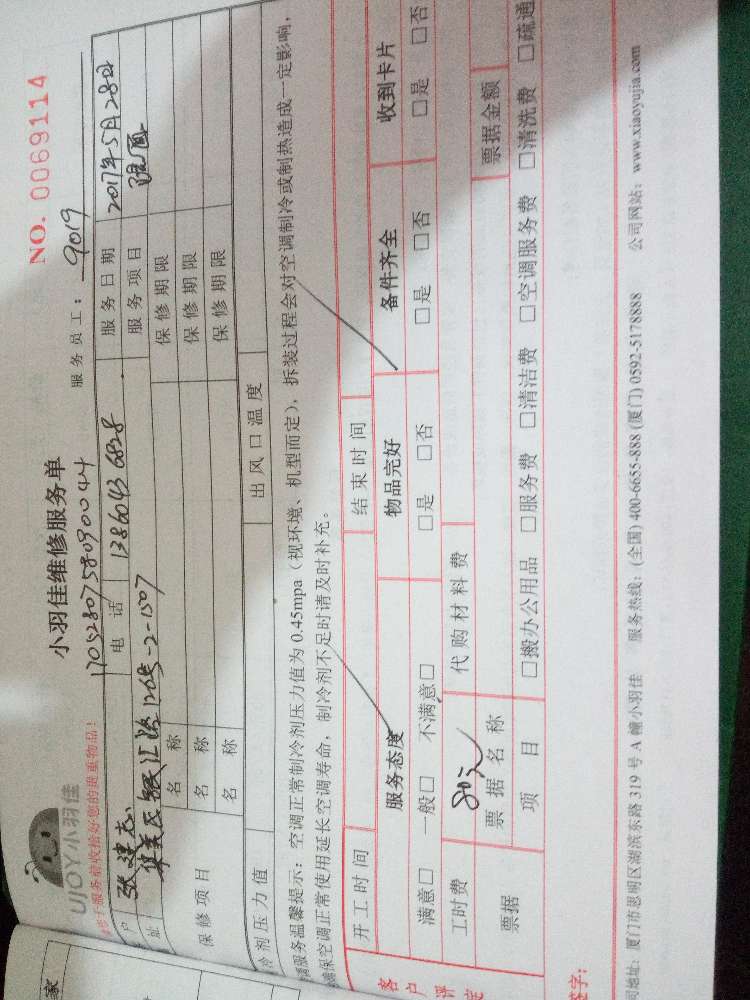 UJOY小羽佳
小羽佳维修服务单
NO. 0069114
1705280758090044
服务员工: 9019
于服务前收拾好您的贵重物品!
户 张建志 电话 13860436828 服务日期 2017年5月28日
址 126号-2-1507 服务项目
保修项目
名称 保修期限
名称 保修期限
名称 保修期限
冷剂压力值 出风口温度
服务温馨提示: 空调正常制冷剂压力值为 0.45mpa (视环境、机型而定), 拆装过程会对空调制冷或制热造成一定影响,
确保空调正常使用延长空调寿命, 制冷剂不足时请及时补充。
开工时间 结束时间
客户评定
服务态度 物品完好 备件齐全 收到卡片
满意□ 一般□ 不满意□ □是 □否 □是 □否 □是 □否
工时费 80元 代购材料费
票据 票据名称 票据金额
项目 □搬办公用品 □服务费 □清洁费 □空调服务费 □清洗费 □疏通
签字:
司地址: 厦门市思明区湖滨东路 319 号 A 幢小羽佳 服务热线: (全国) 400-6655-888 (厦门) 0592-5178888 公司网站: www.xiaoyujia.com
家